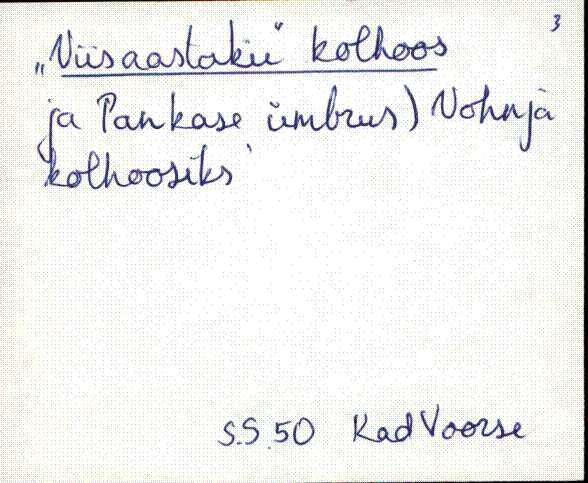 3
„Viisaastaku" kolhoos
ja Pankase ümbrus) Vohnja
kolhoosiks
S.S. 50 Kad Voorse